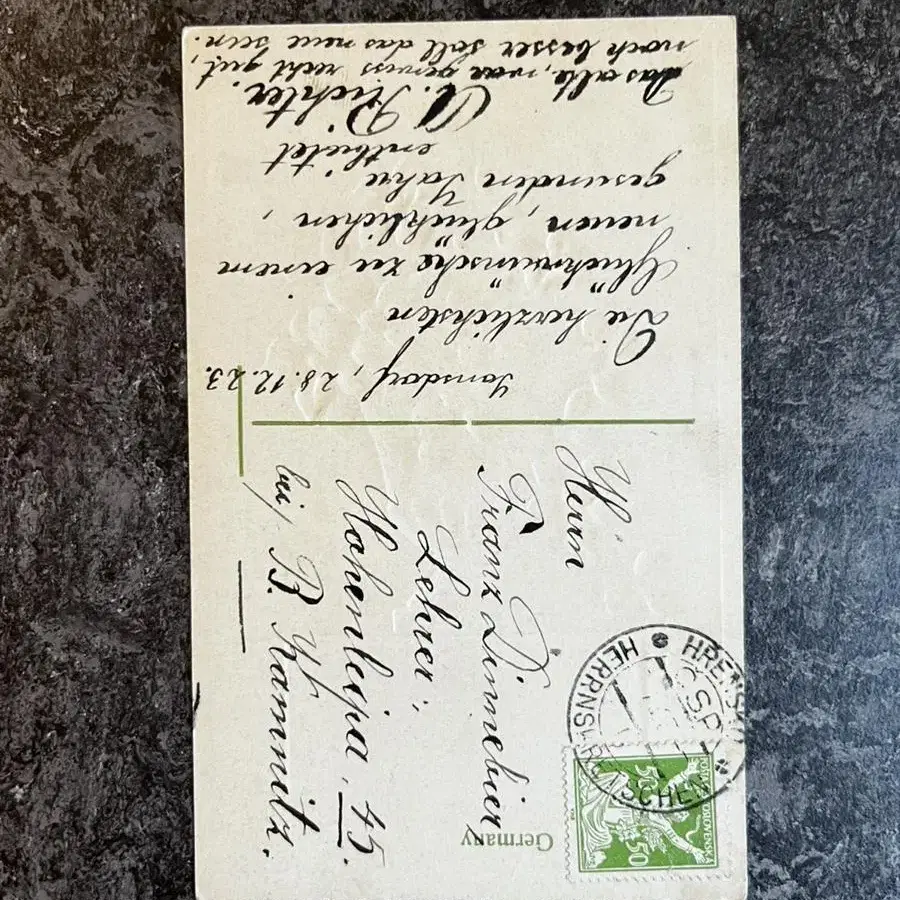 Das alte, war gewiss recht gut,
noch besser soll das neue sein.
Jonsdorf, 28.12.23.
Die herzlichsten
Glückwünsche zu einem
neuen, glücklichen,
gesunden Jahre
entbietet
A. Richter.
Herrn
Franz Dinnebier
Lehrer;
Hohenleipa, 45.
bei B. Kamnitz.
Germany
HŘENSKO
ČSP
HERRNSKRETSCHEN
POŠTA ČESKOSLOVENSKÁ
50 50